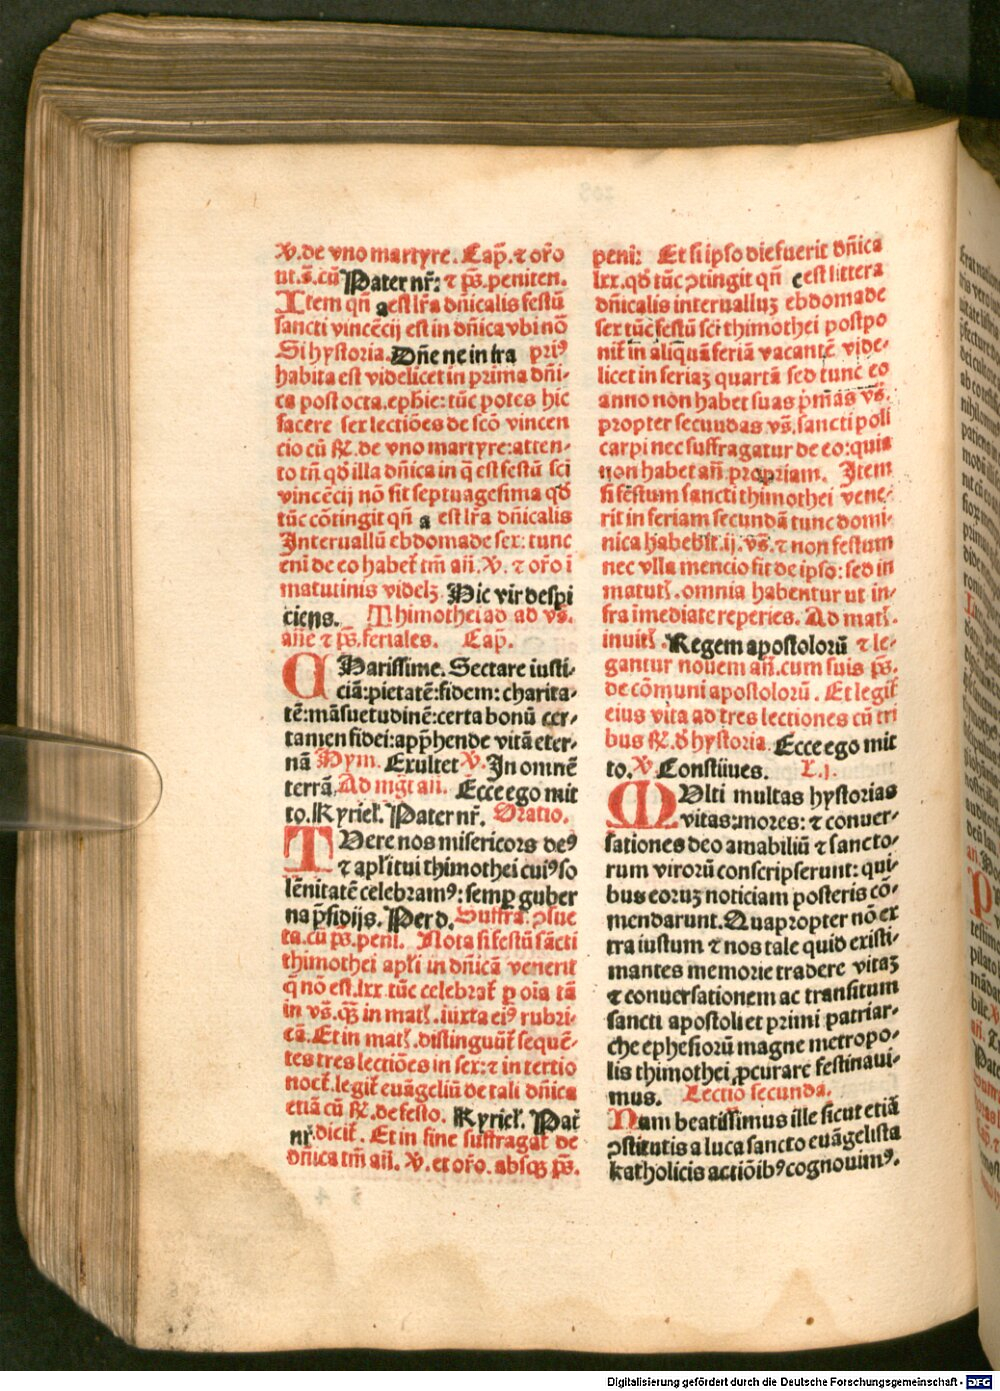 v̄. de vno martyre. Cap̄. ⁊ oro̅
ut.s̄.cū Pater nr̄: ⁊ ps̄.peniten.
Item qn̄ a est lr̄a dn̄icalis festū
sancti vincēcij est in dn̄ica vbi nō
Si hystoria. Dn̄e ne in ira priꝰ
habita est videlicet in prima dn̄i-
ca post octa.ephie: tūc potes hic
facere sex lectiōes de scō vincen
cio cū ℟. de vno martyre: atten-
to tn̄ qď illa dn̄ica in q̄ est festū sci
vincēcij nō sit septuagesima qď
tūc cōtingit qn̄ a est lr̄a dn̄icalis
Interuallū ebdomade sex: tunc
eni de eo habet̄ tm̄ an̄. v̄. ⁊ oro̅ i
matutinis videlꝫ. Hic vir despi
ciens. Thimothei ad ad vs̄.
an̄e ⁊ ps̄.feriales. Cap̄.
CHarissime. Sectare iusti-
ciā: pietatē: fidem: charita-
tē: māsuetudinē: certa bonū cer-
tamen fidei: app̄hende vitā eter-
nā Hym. Exultet v̄. In omnē
terrā. Ad mḡt an̄. Ecce ego mit
to. Kyriel̄. Pater nr̄. Oratio.
TVere nos misericors deꝰ
⁊ apl̄i tui thimothei cuiꝰ so
lēnitatē celebramꝰ: semꝑ guber
na p̄sidijs. Per d. Suffra. ꝯsue
ta.cū ps̄.peni. Nota si festū sācti
thimothei apl̄i in dn̄icā venerit
q̄ nō est.lxx.tūc celebrat̄ ꝑ oīa tā
in vs̄. qꝫ in matl̄. iuxta eiꝰ rubri-
cā. Et in matl̄. distinguūt̄ sequē-
tes tres lectiōes in sex: ⁊ in tertio
noct̄. legit̄ euāgeliū de tali dn̄ica
etiā cū ℟. de festo. Kyriel̄. Pat̄
nr̄. dicit̄. Et in fine suffragat̄ de
dn̄ica tm̄ an̄. v̄. et oro̅. absqꝫ ps̄.
peni: Et si ipso die fuerit dn̄ica
lxx.qď tūc ꝯtingit qn̄ e est littera
dn̄icalis interualluꝫ ebdomade
sex tūc festū sci thimothei postpo
nit̄ in aliquā feriā vacantē vide-
licet in feriaꝫ quartā sed tunc eo
anno non habet suas p̄mas vs̄.
propter secundas vs̄. sancti poli
carpi nec suffragatur de eo: quia
non habet an̄ propriam. Item
si festum sancti thimothei vene-
rit in feriam secundā tunc domi-
nica habebit̄.ij.vs̄. ⁊ non festum
nec vlla mencio fit de ipso: sed in
matutl̄. omnia habentur ut in-
fra īmediate reperies. Ad matl̄.
inuitl̄. Regem apostolorū ⁊ le-
gantur nouem an̄. cum suis ps̄.
de cōmuni apostolorū. Et legit̄
eius vita ad tres lectiones cū tri
bus ℟. ď hystoria. Ecce ego mit
to. v̄ Constitues. L.j.
MVlti multas hystorias
vitas: mores: ⁊ conuer-
sationes deo amabiliū ⁊ sancto-
rum virorū conscripserunt: qui-
bus eoruꝫ noticiam posteris cō-
mendarunt. Quapropter nō ex
tra iustum ⁊ nos tale quid existi-
mantes memorie tradere vitaꝫ
⁊ conuersationem ac transitum
sancti apostoli et primi patriar-
che ephesiorū magne metropo-
lis thimothei, ꝓcurare festinaui-
mus. Lectio secunda.
Nam beatissimus ille sicut etiā
ꝯstitutis a luca sancto euāgelista
katholicis actiōibꝰ cognouimꝰ.
Digitalisierung gefördert durch die Deutsche Forschungsgemeinschaft - DFG